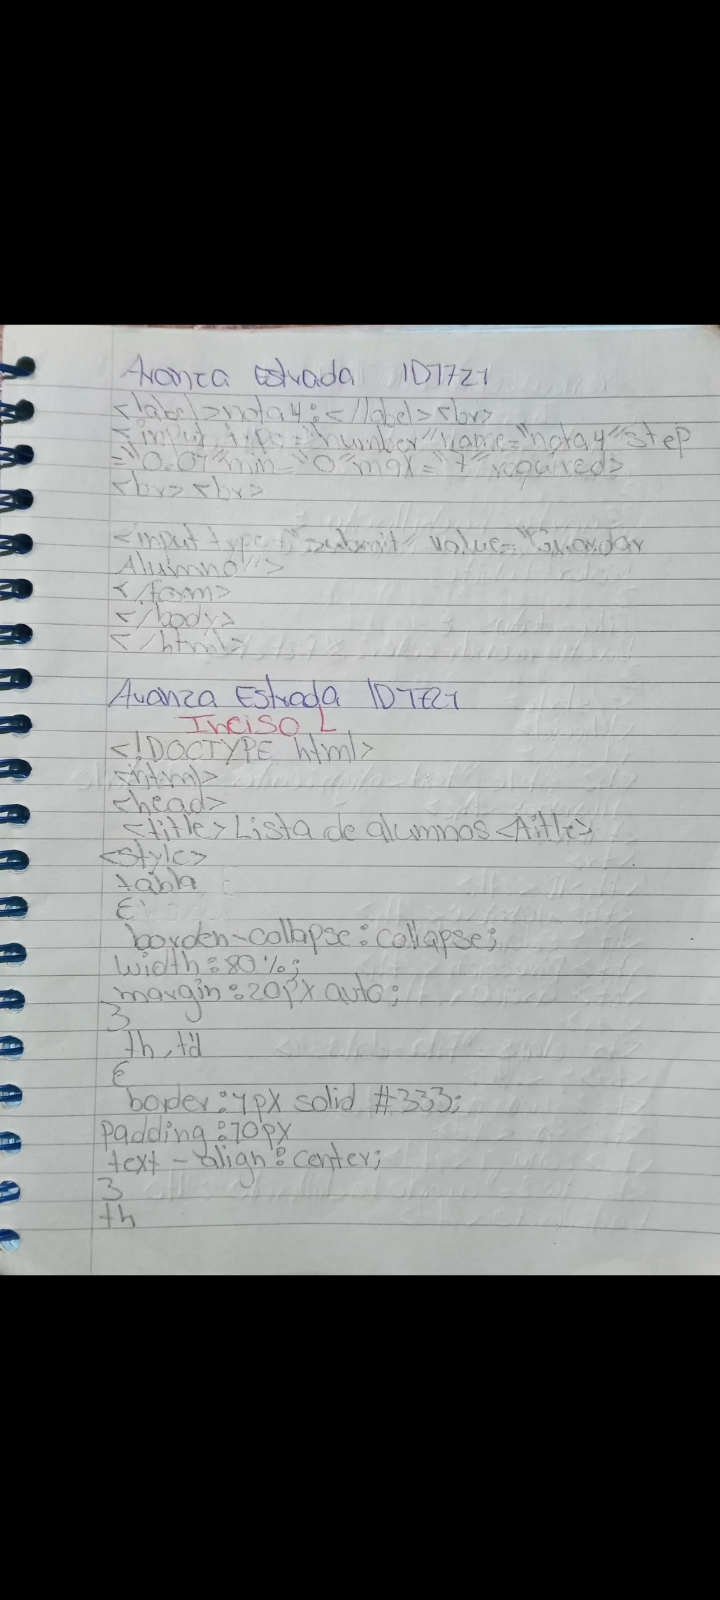 Avanza Estrada ID1721
<label>nota4:</label><br>
<input type="number" name="nota4" step
="0.01" min="0" max="7" required>
<br><br>
<input type="submit" value="Guardar
Alumno">
</form>
</body>
</html>
Avanza Estrada ID1721
Inciso L
<!DOCTYPE html>
<html>
<head>
<title>Lista de alumnos</title>
<style>
tabla
{
borden-collapse:collapse;
width:80%;
margin:20px auto;
}
th,td
{
border:1px solid #333;
Padding:10px
text-align:center;
}
th